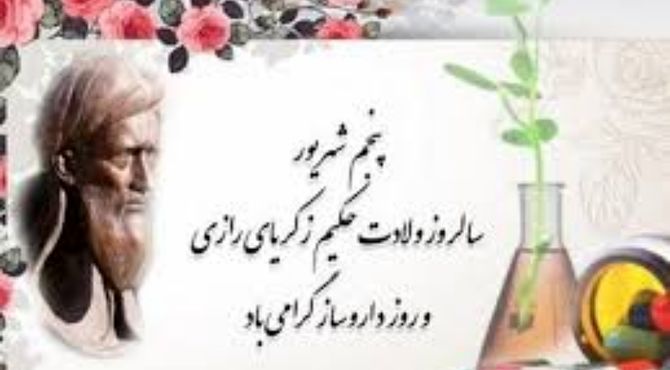 پنجم شهریور
سالروز ولادت حکیم زکریای رازی
و روز داروساز گرامی باد